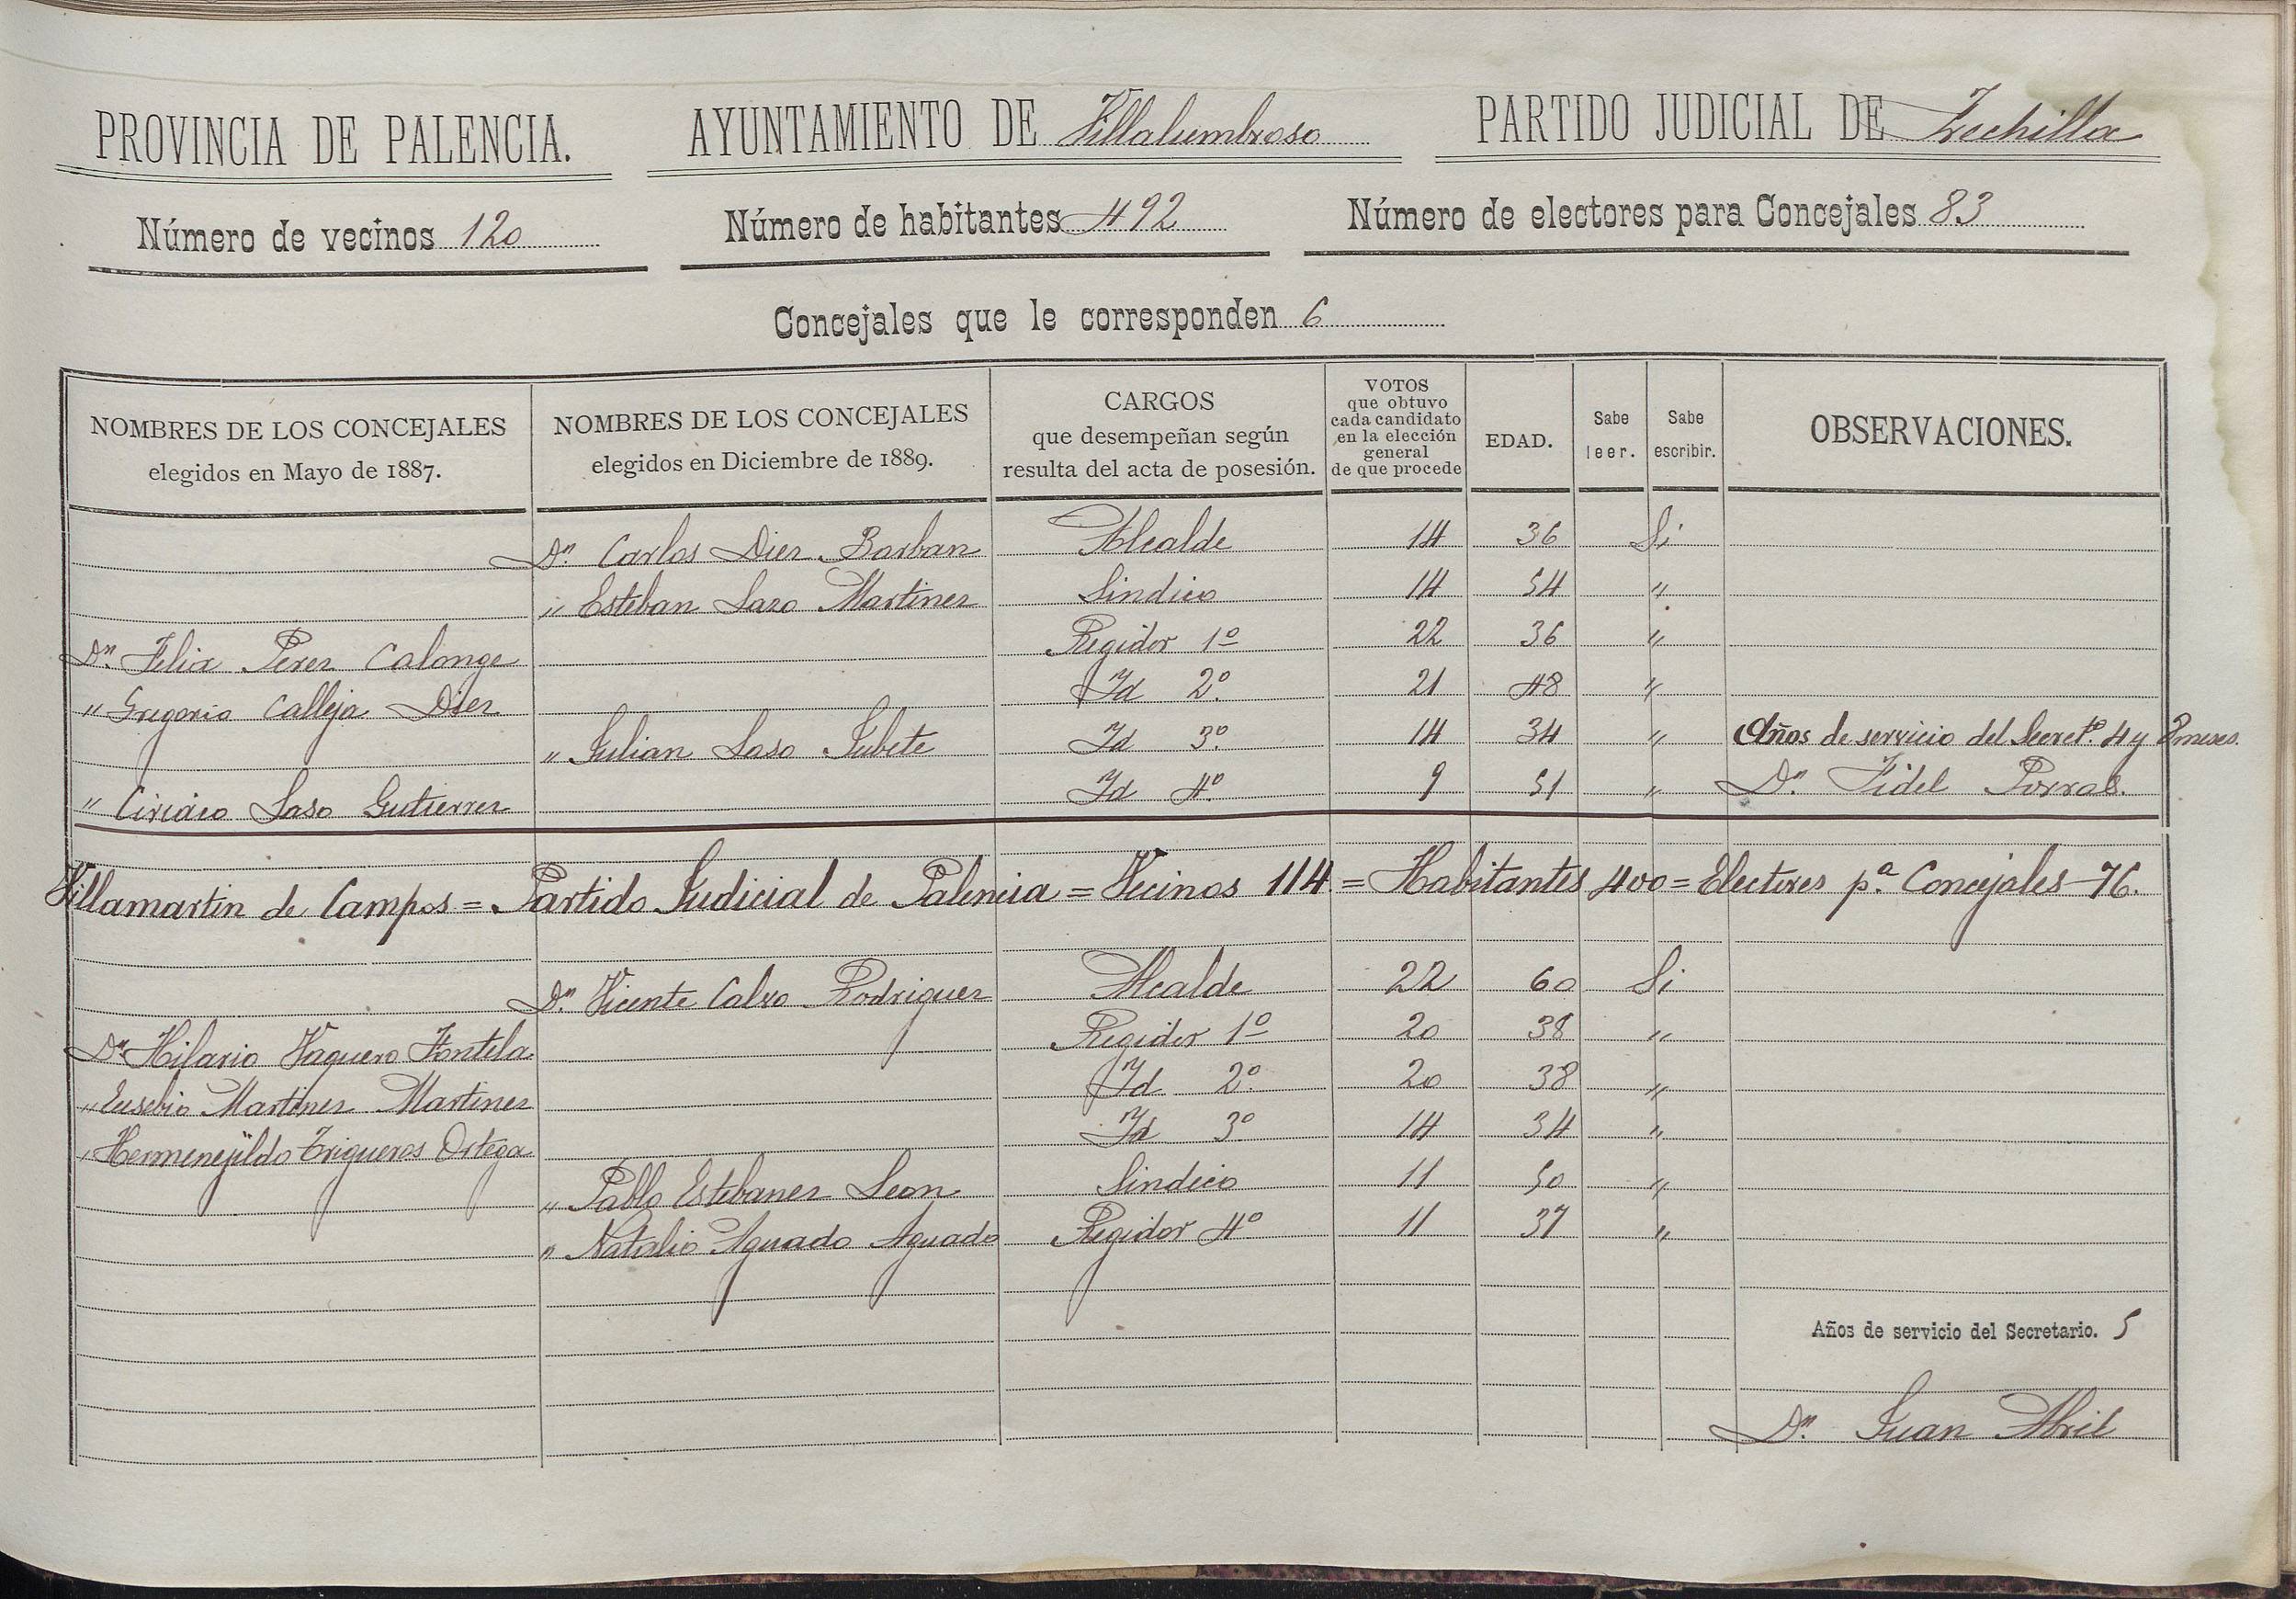 PROVINCIA DE PALENCIA. AYUNTAMIENTO DE Villalumbroso PARTIDO JUDICIAL DE Frechilla
Número de vecinos 120 Número de habitantes 492 Número de electores para Concejales 83
Concejales que le corresponden 6
NOMBRES DE LOS CONCEJALES elegidos en Mayo de 1887. NOMBRES DE LOS CONCEJALES elegidos en Diciembre de 1889. CARGOS que desempeñan según resulta del acta de posesión. VOTOS que obtuvo cada candidato en la elección general de que procede EDAD. Sabe leer. Sabe escribir. OBSERVACIONES.
Dn. Carlos Diez Barban Alcalde 14 36 Si
" Esteban Laso Martinez Sindico 14 54 "
Dn. Felix Perez Calonge Regidor 1º 22 36 "
" Gregorio Calleja Diez Id 2º 21 48 "
" Julian Laso Jubete Id 3º 14 34 " Años de servicio del Secretº. 4 y 8 meses.
" Ciriaco Laso Gutierrez Id 4º 9 51 " Dn. Fidel Porras.
Villamartin de Campos = Partido Judicial de Palencia = Vecinos 114 = Habitantes 400 = Electores pª Concejales 76.
Dn. Vicente Calvo Rodriguez Alcalde 22 60 Si
Dn. Hilario Vaquero Fontela Regidor 1º 20 38 "
" Eusebio Martinez Martinez Id 2º 20 38 "
" Hermenejildo Trigueros Ortega Id 3º 14 34 "
" Pablo Estebanez Leon Sindico 11 50 "
" Natalio Aguado Aguado Regidor 4º 11 37 "
Años de servicio del Secretario. 5
Dn. Juan Abril